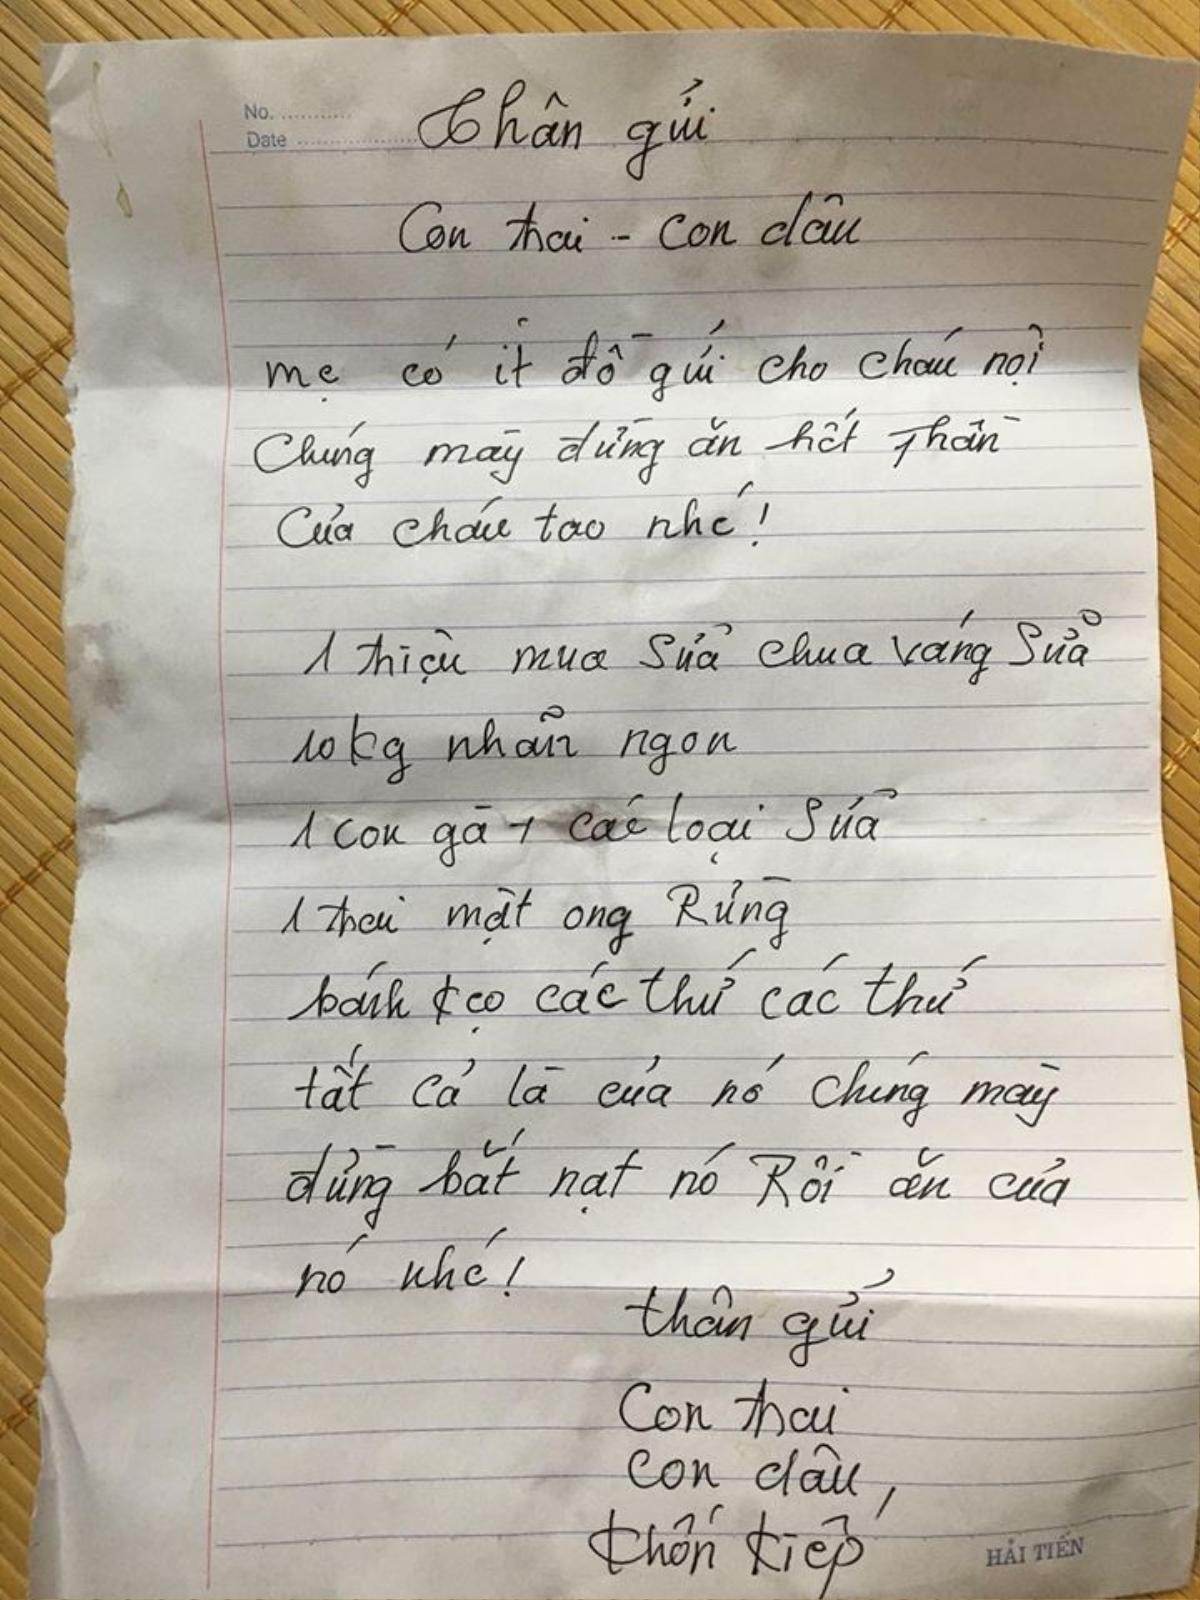 No. ............
Date ....................
Thân gửi
Con trai - con dâu
mẹ có ít đồ gửi cho cháu nội
Chúng mày đừng ăn hết phần
Của cháu tao nhé!
1 triệu mua Sữa chua váng Sữa
10kg nhãn ngon
1 con gà + các loại Sữa
1 chai mật ong Rừng
bánh kẹo các thứ các thứ
tất cả là của nó chúng mày
đừng bắt nạt nó Rồi ăn của
nó nhé!
thân gửi
Con trai
con dâu,
khốn kiếp
HẢI TIẾN